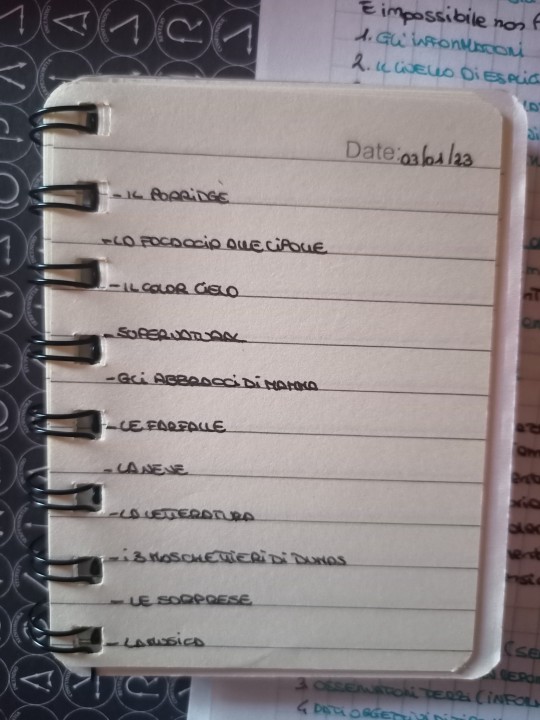 È impossibile non
1. GLI INFORMATORI
2. IL LIVELLO DI
Date: 03/01/23
- IL PORRIDGE
- LA FOCACCIA ALLE CIPOLLE
- IL COLOR CIELO
- SUPERNATURAL
- GLI ABBRACCI DI MAMMA
- LE FARFALLE
- LA NEVE
- LA LETTERATURA
- i 3 MOSCHETTIERI DI DUMAS
- LE SORPRESE
- LA MUSICA
3 OSSERVATORI TERZI (INFOR
4 DATI OGGETTIVI DI